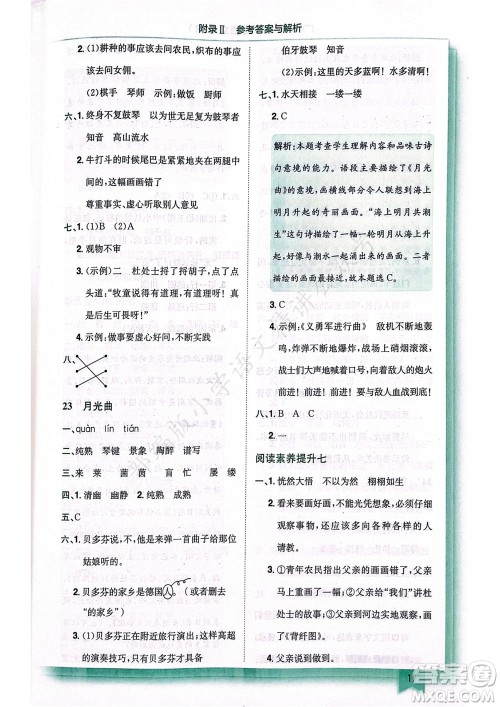 附录Ⅱ 参考答案与解析
2. (1)耕种的事应该去问农民，织布的事应
该去问女佣。
(2)棋手 琴师 示例：做饭 厨师
六、1. 终身不复鼓琴 以为世无足复为鼓琴者
知音 高山流水
2. 牛打斗的时候尾巴是紧紧地夹在两腿中
间的，这幅画画错了
尊重事实、虚心听取别人意见
七、1. (1)B (2)A
2. 观物不审
3. (示例)二 杜处士捋了捋胡子，点了点
头道，“牧童说得有道理，有道理啊！真
是后生可畏呀！”
4. 示例：做事前要虚心好问，不断实践
八、
23 月光曲
一、quàn lín tián
二、纯熟 琴键 景象 陶醉 谱写
三、来 莱 菌 茵 盲 忙 屡 缕
四、1. 清幽 幽静 2. 纯熟 成熟
五、C
六、1. 贝多芬说，不，他是来弹一首曲子给这位
姑娘听的。
2. 贝多芬的家乡是德国人。（或者删去
“的家乡”）
3. 贝多芬正在附近旅行演出；这样超越
的演奏技巧，只有贝多芬才具备
伯牙鼓琴 知音
4. 示例：今天的天多蓝啊！水多清啊！
七、1. 水天相接 一缕一缕
2. C
解析：本题考查学生理解内容和品味古诗
句意境的能力。语段主要描绘了《月光
曲》的意境，画横线部分令人联想到海上
明月升起的奇丽画面。“海上明月共潮
生”这句诗描绘了一轮明月从海上升起，
好像与潮水一起涌出来的画面。二者
描绘的画面最接近，故本题选C。
3. B
4. 示例：《义勇军进行曲》 敌机不断地轰
鸣，炸弹不断倾泻，战场上硝烟滚滚，
战火熊熊，人们高喊着向着敌人的炮火
前进！前进！前进！要与敌人血战
到底！
八、1. B A C
2. 一
阅读素养提升七
一、1. 恍然大悟 不信不疑 自以为是
2. 看来要画好画，不能凭空想象，必须仔细
观察事物，还应该多向有经验的人
请教。
3. ①青年农民指出父亲的画画错了，父亲
马上重画了一幅；②父亲给“我们”讲杜
处士的故事；③父亲到河边实地观察，画
了《背纤图》。
4. 父亲说到做到。